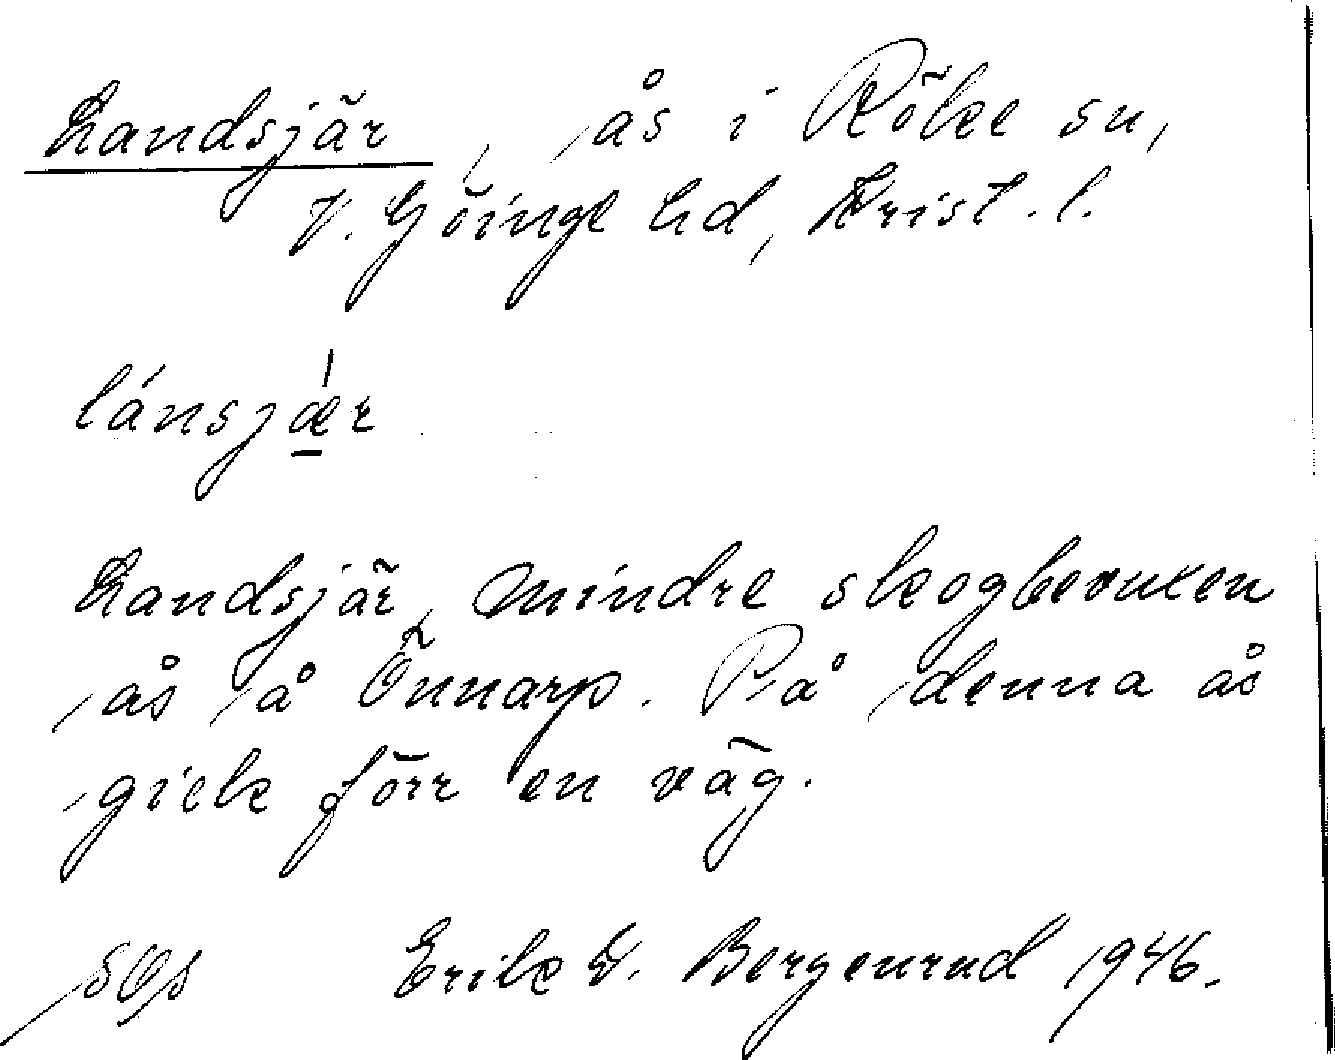 Landsjär, ås i Röke sn,
V. Göinge hd, Krist. l.
lánsjǽ̱r
Landsjär, mindre skogbevuxen
ås å Önnarp. På denna ås
gick förr en väg.
Erik W. Bergenrud 1946.